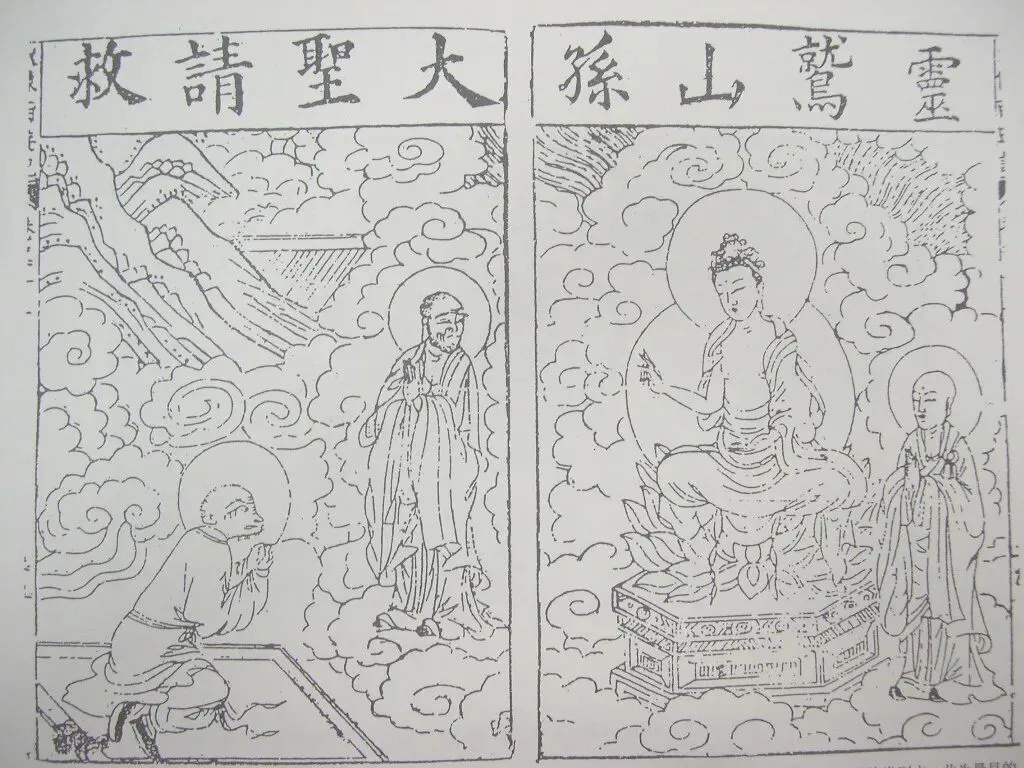 靈鷲山孫
大聖請救